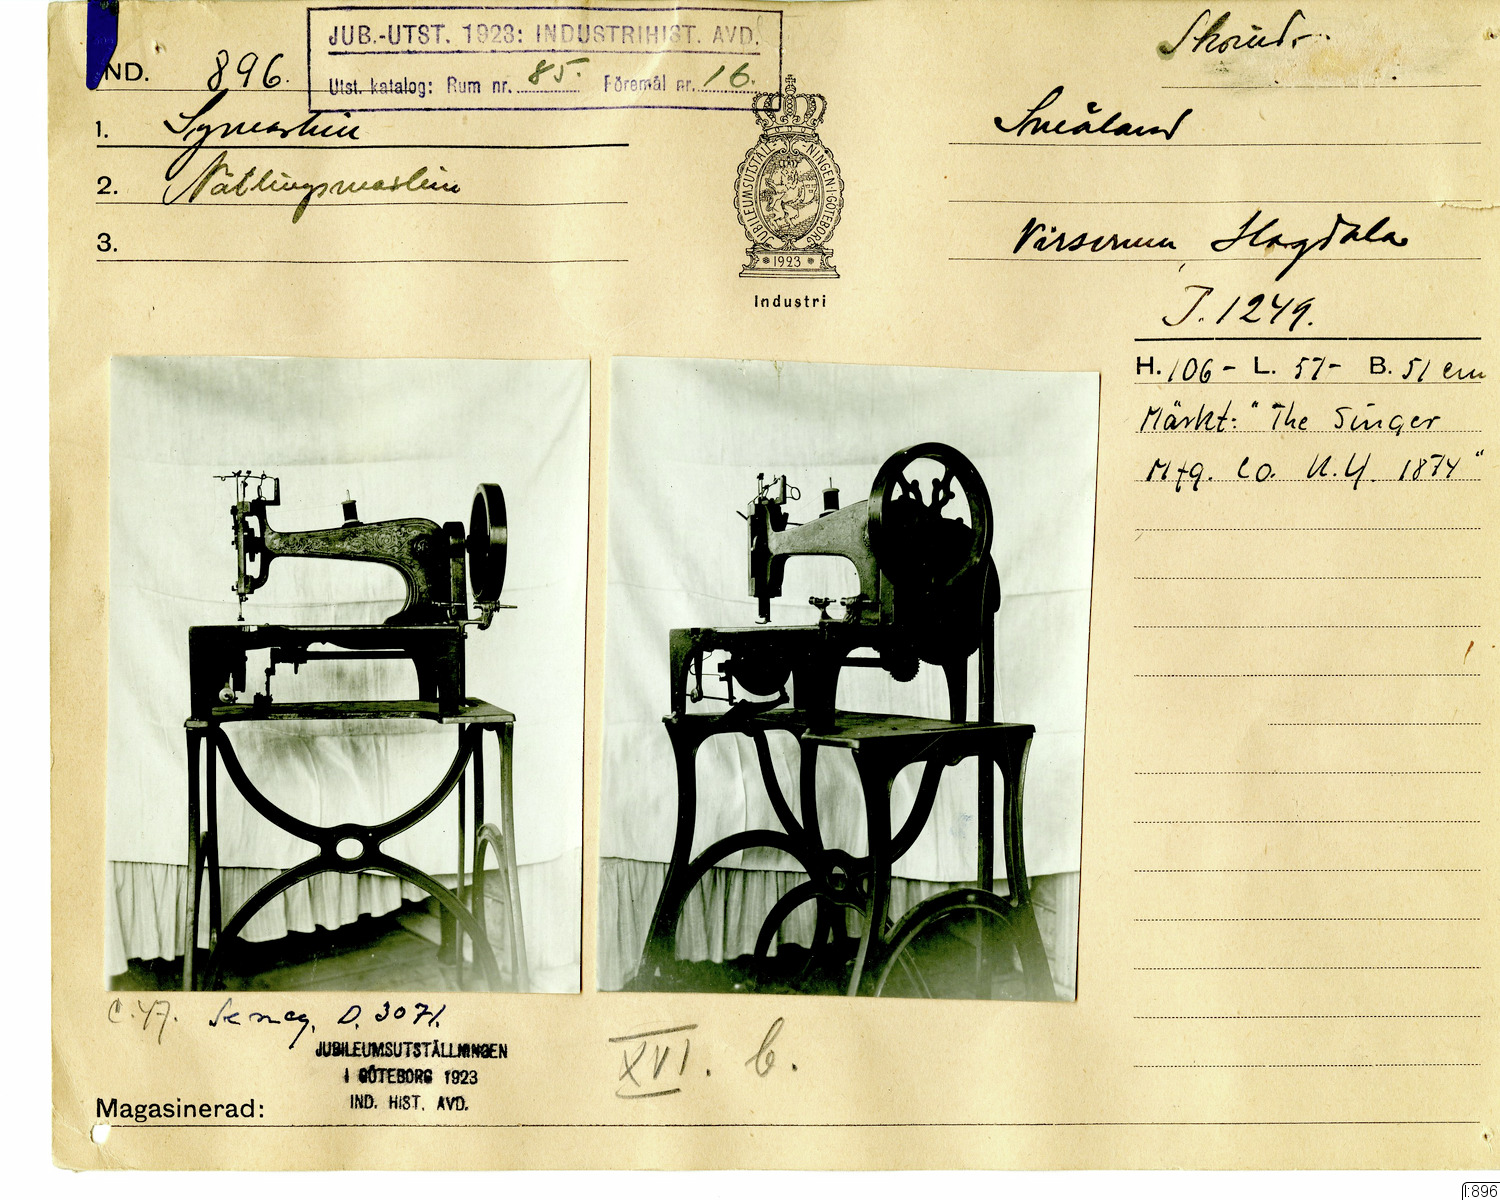 JUB.-UTST. 1923: INDUSTRIHIST. AVD.
Utst. katalog: Rum nr. 85. Föremål nr. 16.
IND. 896.
1. Symaskin
2. Nåtlingsmaskin
3.
JUBILEUMSUTSTÄLLNINGEN I GÖTEBORG
1923
Industri
Skoind.
Småland
Virserum, Hagdala
J. 1249.
H. 106 - L. 57 - B. 51 cm
Märkt: "The Singer
Mfg. Co. N.Y. 1874"
C. 47. D. 3071.
JUBILEUMSUTSTÄLLNINGEN
I GÖTEBORG 1923
IND. HIST. AVD.
XVI. b.
Magasinerad:
I:896